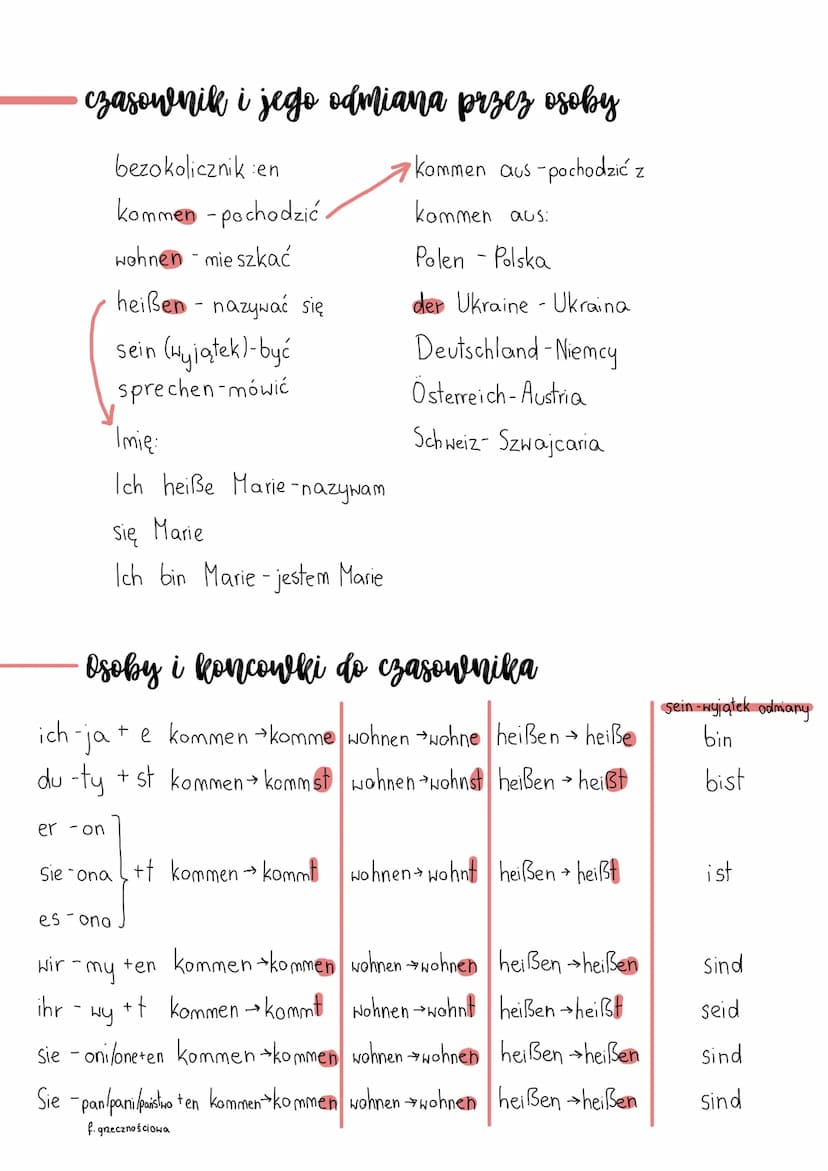 czasownik i jego odmiana przez osoby
bezokolicznik :en
kommen - pochodzić
wohnen - mieszkać
heißen - nazywać się
sein (wyjątek)-być
sprechen-mówić
Imię:
Ich heiße Marie-nazywam
się Marie
Ich bin Marie-jestem Marie
kommen aus-pochodzić z
kommen aus:
Polen - Polska
der Ukraine - Ukraina
Deutschland-Niemcy
Österreich-Austria
Schweiz- Szwajcaria
Osoby i koncowki do czasownika
sein-wyjątek odmiany
ich-ja + e kommen→komme wohnen→wohne heißen→heiße bin
du-ty + st kommen→kommst wohnen→wohnst heißen→heißt bist
er - on
sie-ona +t kommen→kommt wohnen→wohnt heißen→heißt ist
es - ono
wir - my +en kommen→kommen wohnen→wohnen heißen→heißen sind
ihr - wy +t kommen→kommt wohnen→wohnt heißen→heißt seid
sie - oni/one+en kommen→kommen wohnen→wohnen heißen→heißen sind
Sie -pan/pani/państwo +en kommen→kommen wohnen→wohnen heißen→heißen sind
f. grzecznościowa